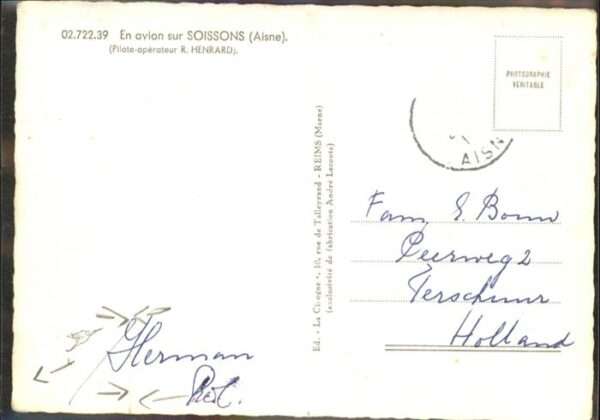 02.722.39 En avion sur SOISSONS (Aisne).
(Pilote-opérateur R. HENRARD).
PHOTOGRAPHIE
VÉRITABLE
AISN
Ed. - La Cigogne -, 10, rue de Talleyrand - REIMS (Marne)
(exclusivité de fabrication André Leconte)
Fam. E. Boom
Peerweg 2
Terschuur
Holland
Herman